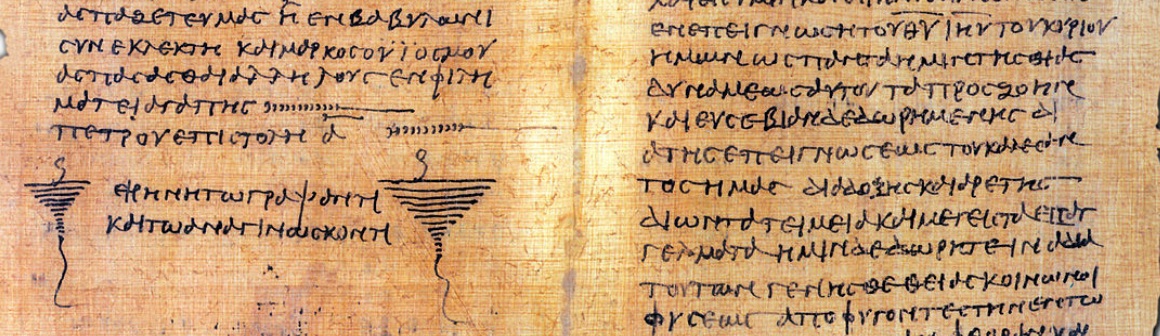 ασπαζετε υμας η εν βαβυλωνι
συνεκλεκτη και μαρκος ο υιος μου
ασπασασθαι αλληλους εν φιλη
ματει αγαπης
πετρου επιστολη α
ειρηνη τω γραψαντι
και τω αναγινωσκοντι
εν επειγνωση του θυ ιηυ του κυριου
ημων ως παντα ημιν της θιας
δυναμεως αυτου τα προς ζωην
και ευσεβιαν δεδωρημενης δι
α της επειγνωσεως του καλεσαν
τος ημας δια δοξης και αρετης
δι ων τα τειμεια και μεγειστα επαν
γελματα ημιν δεδωρητε ινα δια
τουτων γενησθε θειας κοινωνοι
φυσεως αποφυγοντες την εν τω